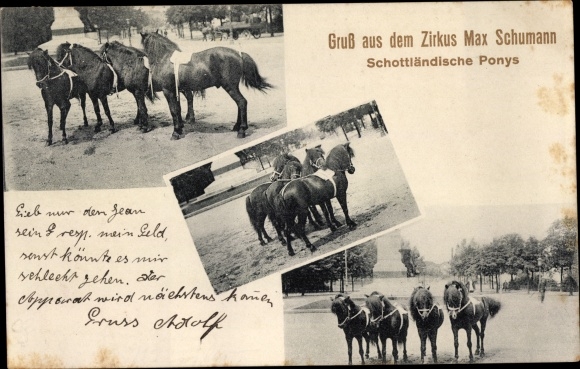 Gruß aus dem Zirkus Max Schumann
Schottländische Ponys
Gieb nur den Jean
sein G resp. mein Geld,
sonst könnte es mir
schlecht gehen. Der
Apparat wird nächstens
Gruss Adolf